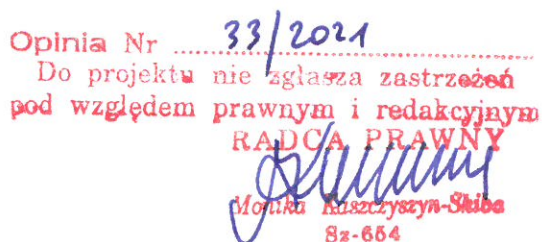 Opinia Nr 33/2021
Do projektu nie zgłasza zastrzeżeń
pod względem prawnym i redakcyjnym
RADCA PRAWNY
Monika Kuszczyszyn-Skiba
Sz-654